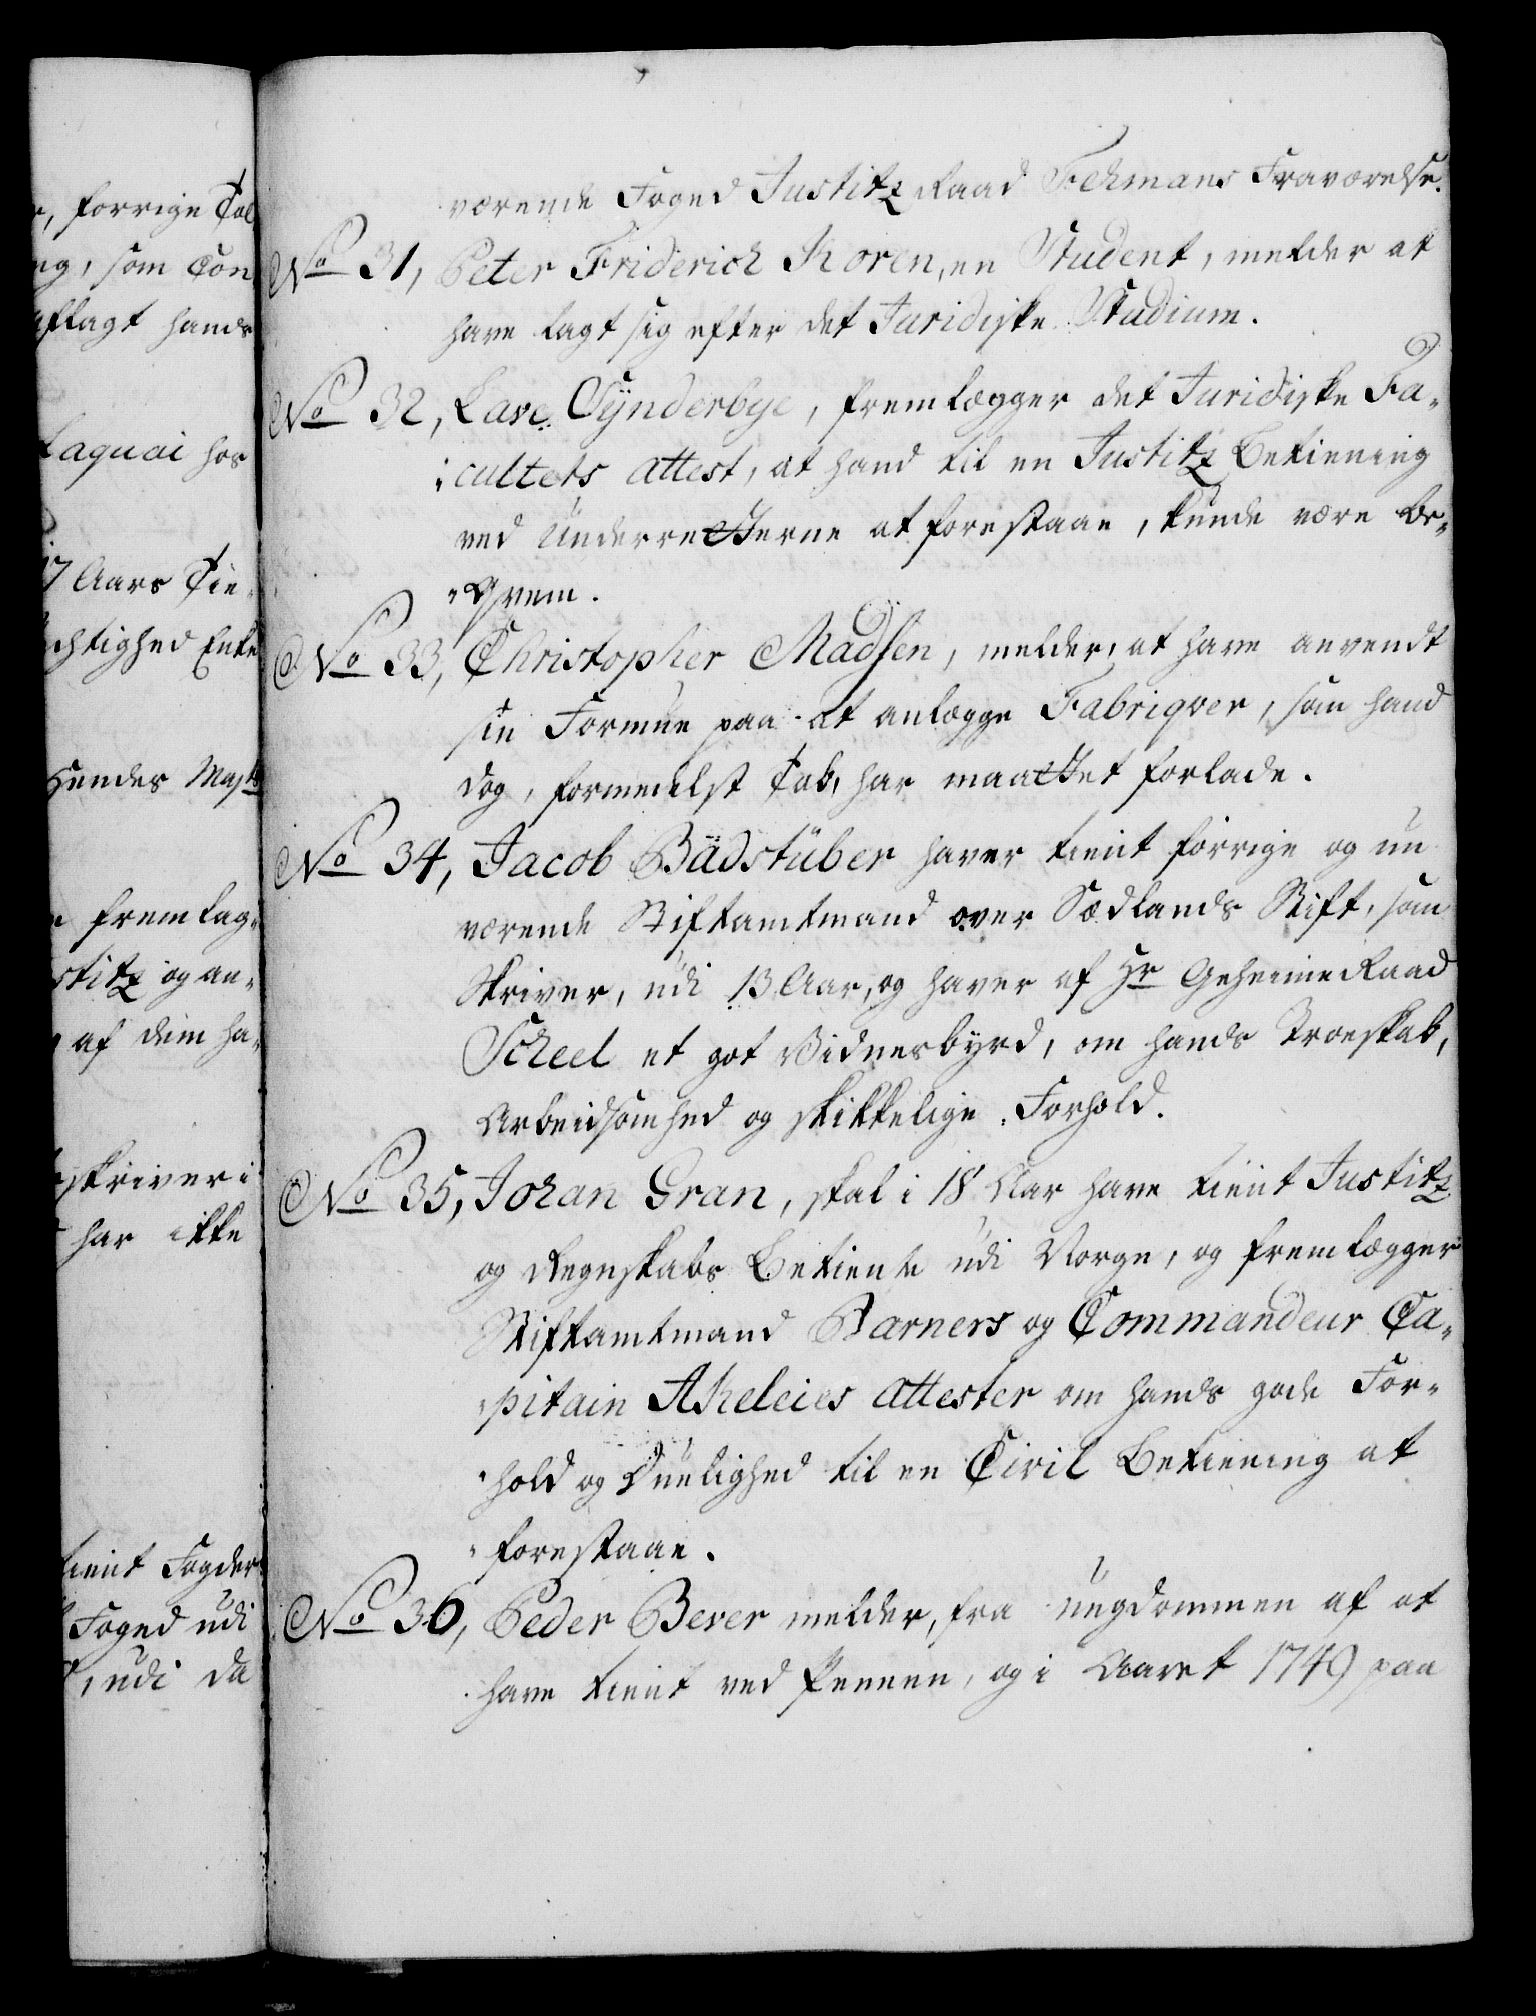 r, forrige Tol
ng, som Con
aflagt hands
Laquai hos
17 Aars Tie-
chtighed Enke
Hendes Mayts
fremlag-
stitz og an-
af dem ha-
skriver i
har ikke
tient Fogder
Foged udi
, udi da
værende Foged Justitz Raad Fehmans Fraværelse.
No 31, Peter Friderich Koren, en Student, melder at
have lagt sig efter det Juridiske Studium.
No 32, Lave Synderbye, fremlægger det Juridiske Fa-
cultets Attest, at hand til en Justitz Betiening
ved Underretterne at forestaae, kunde være be-
qvem.
No 33, Christopher Madsen, melder, at have anvendt
sin Formue paa at anlægge Fabriqver, som hand
dog, formedelst Tab, har maattet forlade.
No 34, Jacob Bädstüber haver tient forrige og nu
værende Stiftamtmand over Siællands Stift, som
Skriver, udi 13 Aar, og haver af Hr Geheime Raad
Scheel et got Vidnesbyrd, om hands Troeskab,
Arbeidsomhed og skikkelige Forhold.
No 35, Johan Gran, skal i 18 Aar have tient Justitz
og Regnskabs Betiente udi Norge, og fremlægger
Stiftamtmand Barners og Commandeur Ca-
pitain Akeleies Attester om hands gode For-
hold og Duelighed til en Civil Betiening at
forestaae.
No 36, Peder Bever melder, fra ungdommen af at
have tient ved Pennen, og i Aaret 1749 paa